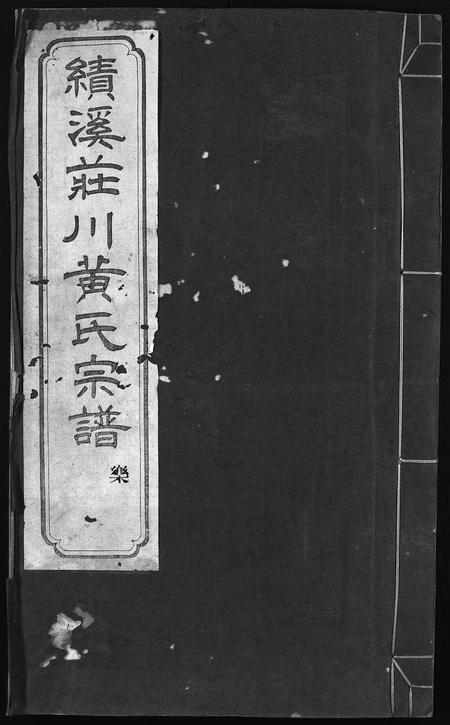 績溪莊川黄氏宗譜
樂